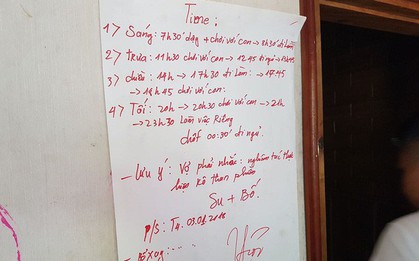 Time:
1> Sáng: 7h30 dậy + chơi với con → 8h30 đi làm
2> trưa: 11h30 chơi với con → 12h45 đi ngủ → 13h45
3> chiều: 14h → 17h30 đi làm: → 17h45
→ 18h45 chơi với con.
4> Tối: 20h → 20h30 chơi với con → 21h
→ 23h30 làm việc riêng
chốt 00:30' đi ngủ.
- Lưu ý: Vợ phải nhắc: nghiêm túc thực
hiện kô than phiền
Su + Bố.
P/s: T4. 03.01.2018